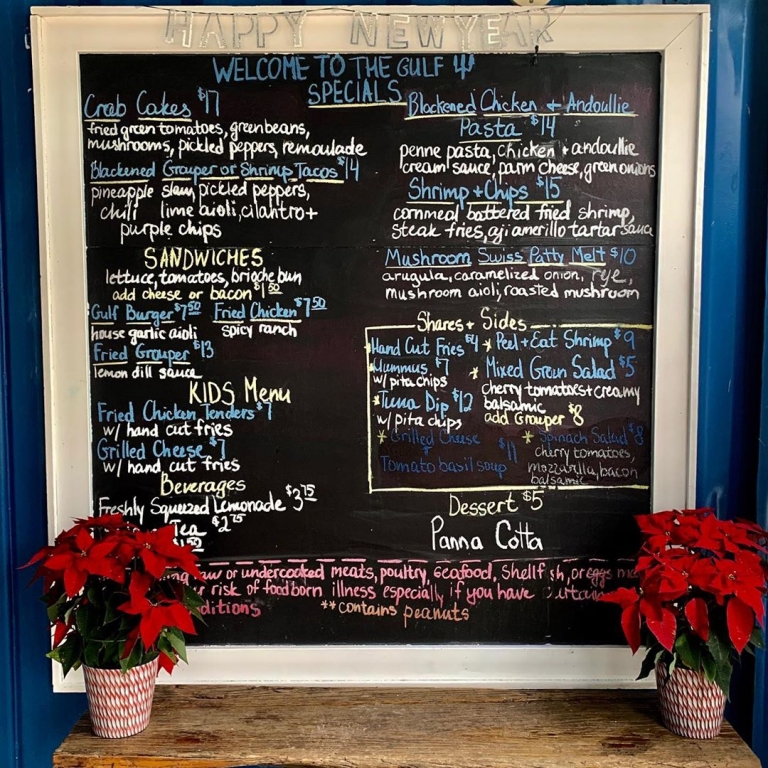 HAPPY NEW YEAR
WELCOME TO THE GULF
SPECIALS
Crab Cakes $17
fried green tomatoes, greenbeans,
mushrooms, pickled peppers, remoulade
Blackened Grouper or Shrimp Tacos $14
pineapple slaw, pickled peppers,
chili lime aioli, cilantro +
purple chips
Blackened Chicken + Andoullie
Pasta $14
penne pasta, chicken + andoullie
cream sauce, parm cheese, green onions
Shrimp + Chips $15
cornmeal battered fried shrimp,
steak fries, aji amerillo tartar sauce
SANDWICHES
lettuce, tomatoes, brioche bun
add cheese or bacon $1.50
Gulf Burger $7.50
house garlic aioli
Fried Chicken $7.50
spicy ranch
Fried Grouper $13
lemon dill sauce
Mushroom Swiss Patty Melt $10
arugula, caramelized onion, rye,
mushroom aioli, roasted mushroom
KIDS Menu
Fried Chicken Tenders $7
w/ hand cut fries
Grilled Cheese $7
w/ hand cut fries
Beverages
Freshly Squeezed Lemonade $3.75
Tea $2.75
Shares + Sides
Hand Cut Fries $4
*Hummus $7
w/ pita chips
*Tuna Dip $12
w/ pita chips
*Grilled Cheese
+
Tomato basil soup $11
*Peel + Eat Shrimp $9
*Mixed Green Salad $5
cherry tomatoes + creamy
balsamic
add Grouper $8
*Spinach Salad $8
cherry tomatoes,
mozzarella, bacon
balsamic
Dessert $5
Panna Cotta
raw or undercooked meats, poultry, seafood, shellfish, or eggs
risk of foodborn illness especially if you have
**contains peanuts